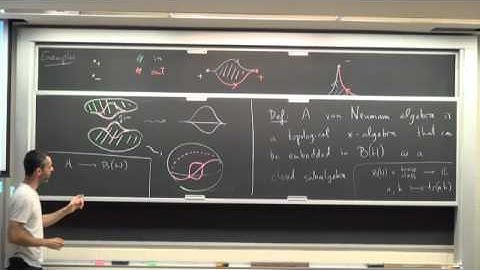 Examples
in
out
Def. A von Neumann algebra is
a topological *-algebra that can
be embedded in B(H) as a
closed subalgebra
A → B(H)
B(H) × trace class → C
a, b ↦ tr(ab)